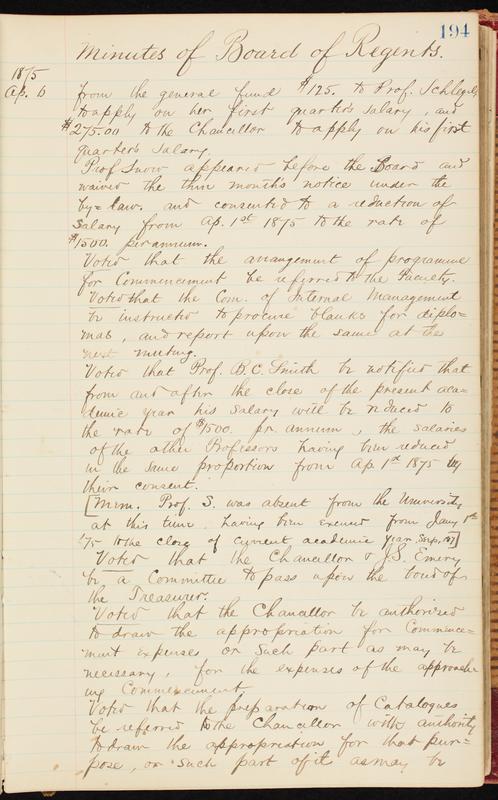 194
Minutes of Board of Regents.
1875
Ap. 6
from the general fund $125. to Prof. Schlegel,
to apply on her first quarter's salary, and
$275.00 to the Chancellor to apply on his first
quarter's salary.
Prof Snow appeared before the Board and
waived the three month's notice under the
by=law. and consented to a reduction of
salary from Ap. 1st 1875 to the rate of
$1500. per annum.
Voted that the arrangement of programme
for Commencement be referred to the Faculty.
Voted that the Com. of Internal Management
be instructed to procure blanks for diplo=
mas, and report upon the same at the
next meeting.
Voted that Prof. B.C. Smith be notified that
from and after the close of the present aca=
demic year his salary will be reduced to
the rate of $1500. pr. annum, the salaries
of the other Professors having been reduced
in the same proportion from Ap. 1st 1875 by
their consent.
[Mem. Prof. S. was absent from the University
at this time, having been excused from Jany 1st
'75 to the close of current academic year.
Voted that the Chancellor & J.S. Emery
be a Committee to pass upon the bond of
the Treasurer.
Voted that the Chancellor be authorized
to draw the appropriation for Commence=
ment expenses or such part as may be
necessary, for the expenses of the approach
ing Commencement.
Voted that the preparation of Catalogues
be referred to the Chancellor with authority
to draw the appropriation for that pur=
pose, or such part of it as may be